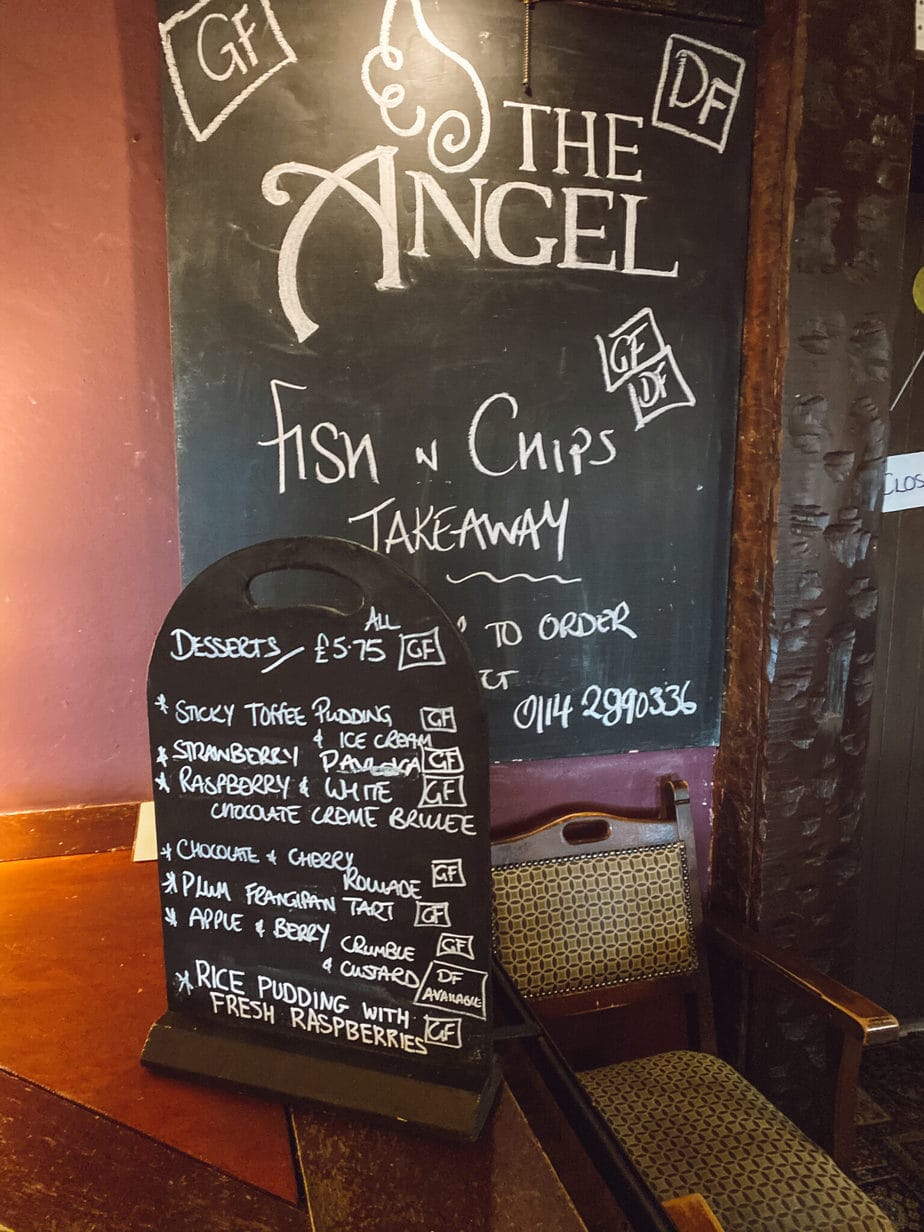 GF
DF
THE
ANGEL
GF
DF
FISH N CHIPS
TAKEAWAY
TO ORDER
0114 2890336
CLOS
ALL
DESSERTS / £5.75 GF
* STICKY TOFFEE PUDDING GF
& ICE CREAM
* STRAWBERRY PAVLOVA GF
* RASPBERRY & WHITE GF
CHOCOLATE CREME BRULEE
* CHOCOLATE & CHERRY
ROULADE GF
* PLUM FRANGIPAN TART GF
* APPLE & BERRY CRUMBLE GF
& CUSTARD DF
AVAILABLE
* RICE PUDDING WITH
FRESH RASPBERRIES GF